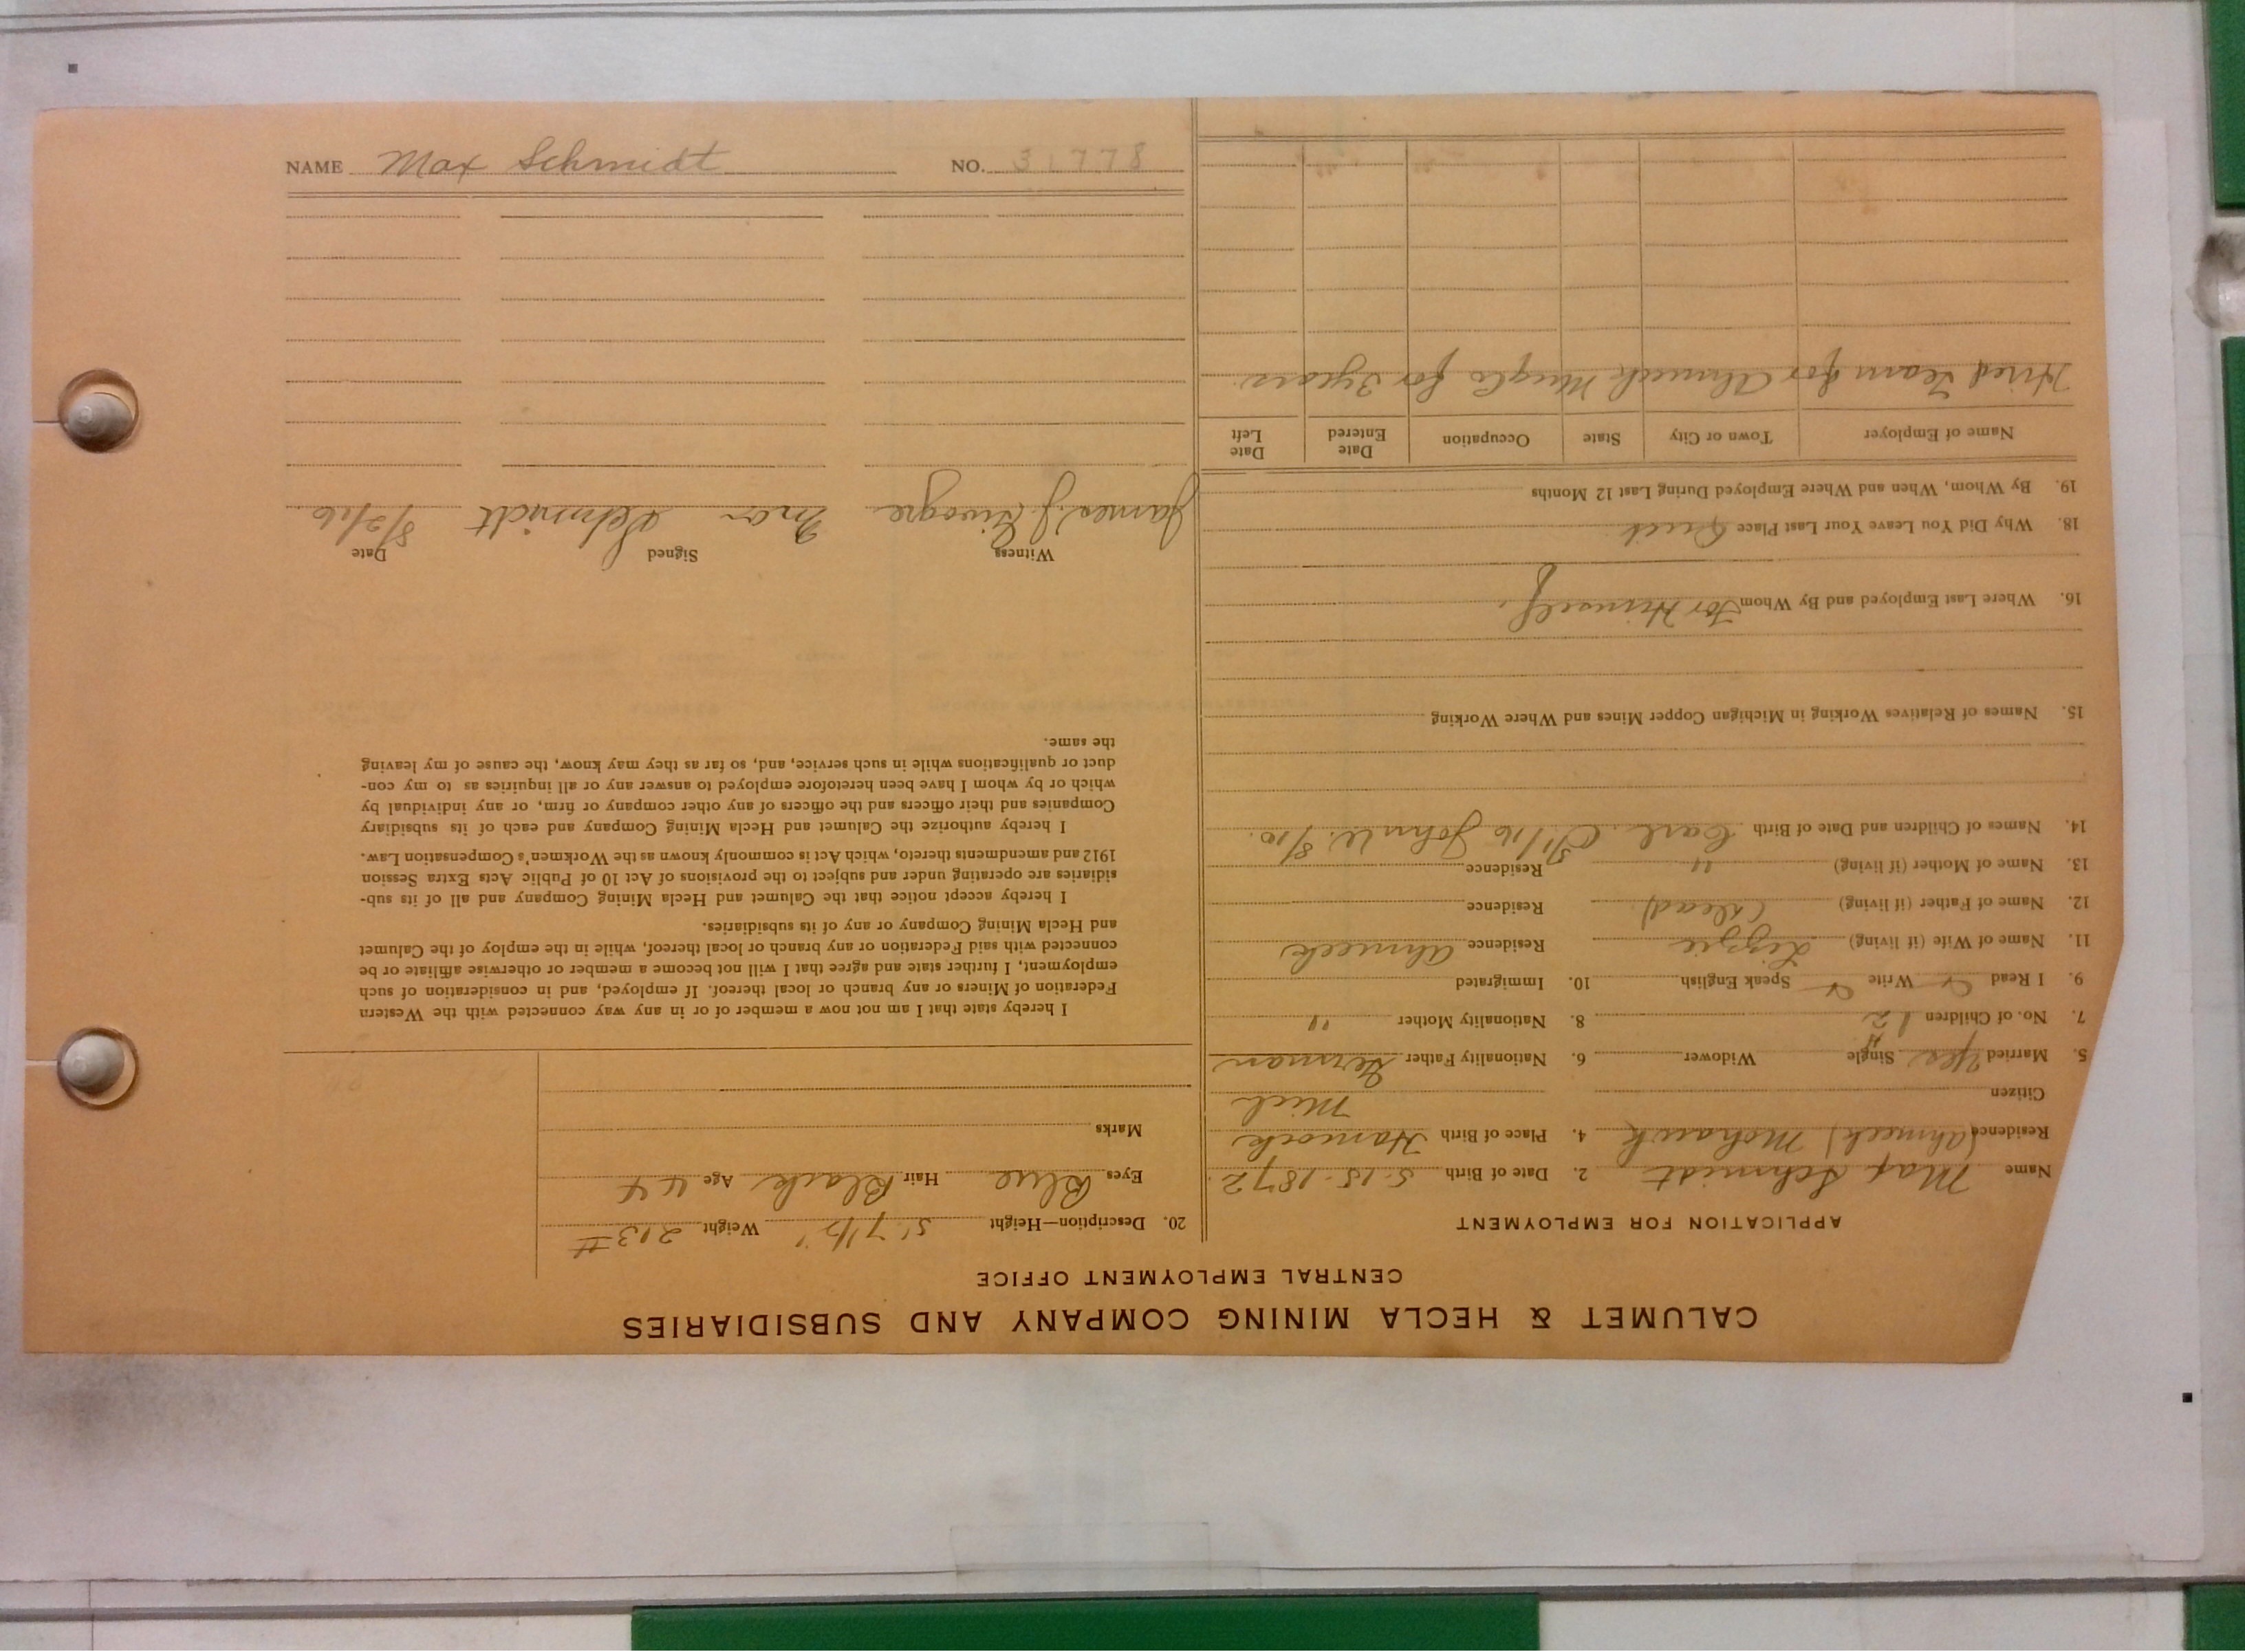 NAME Max Schmidt NO. 31778
CALUMET & HECLA MINING COMPANY AND SUBSIDIARIES
CENTRAL EMPLOYMENT OFFICE
APPLICATION FOR EMPLOYMENT
Name Max Schmidt 2. Date of Birth 5-15-1872
Residence (Ahmeek) Mohawk 4. Place of Birth Hancock
Citizen Mich
5. Married Yes Single Widower 6. Nationality Father German
7. No. of Children 8. Nationality Mother "
9. I Read Write Speak English 10. Immigrated
11. Name of Wife (if living) Lizzie Residence Ahmeek
12. Name of Father (if living) (dead) Residence
13. Name of Mother (if living) " Residence
14. Names of Children and Date of Birth Carl 5/1/16 John W. 8/10.
15. Names of Relatives Working in Michigan Copper Mines and Where Working
16. Where Last Employed and By Whom For Himself.
18. Why Did You Leave Your Last Place Quit
19. By Whom, When and Where Employed During Last 12 Months
Name of Employer Town or City State Occupation Date Entered Date Left
Hired Team for Ahmeek Mng Co for 3 years.
20. Description—Height 5' 7 1/2" Weight 213 #
Eyes Blue Hair Black Age 44
Marks
I hereby state that I am not now a member of or in any way connected with the Western
Federation of Miners or any branch or local thereof. If employed, and in consideration of such
employment, I further state and agree that I will not become a member or otherwise affiliate or be
connected with said Federation or any branch or local thereof, while in the employ of the Calumet
and Hecla Mining Company or any of its subsidiaries.
I hereby accept notice that the Calumet and Hecla Mining Company and all of its sub-
sidiaries are operating under and subject to the provisions of Act 10 of Public Acts Extra Session
1912 and amendments thereto, which Act is commonly known as the Workmen's Compensation Law.
I hereby authorize the Calumet and Hecla Mining Company and each of its subsidiary
Companies and their officers and the officers of any other company or firm, or any individual by
which or by whom I have been heretofore employed to answer any or all inquiries as to my con-
duct or qualifications while in such service, and, so far as they may know, the cause of my leaving
the same.
Witness Signed Date
James J. Max Schmidt 8/2/16